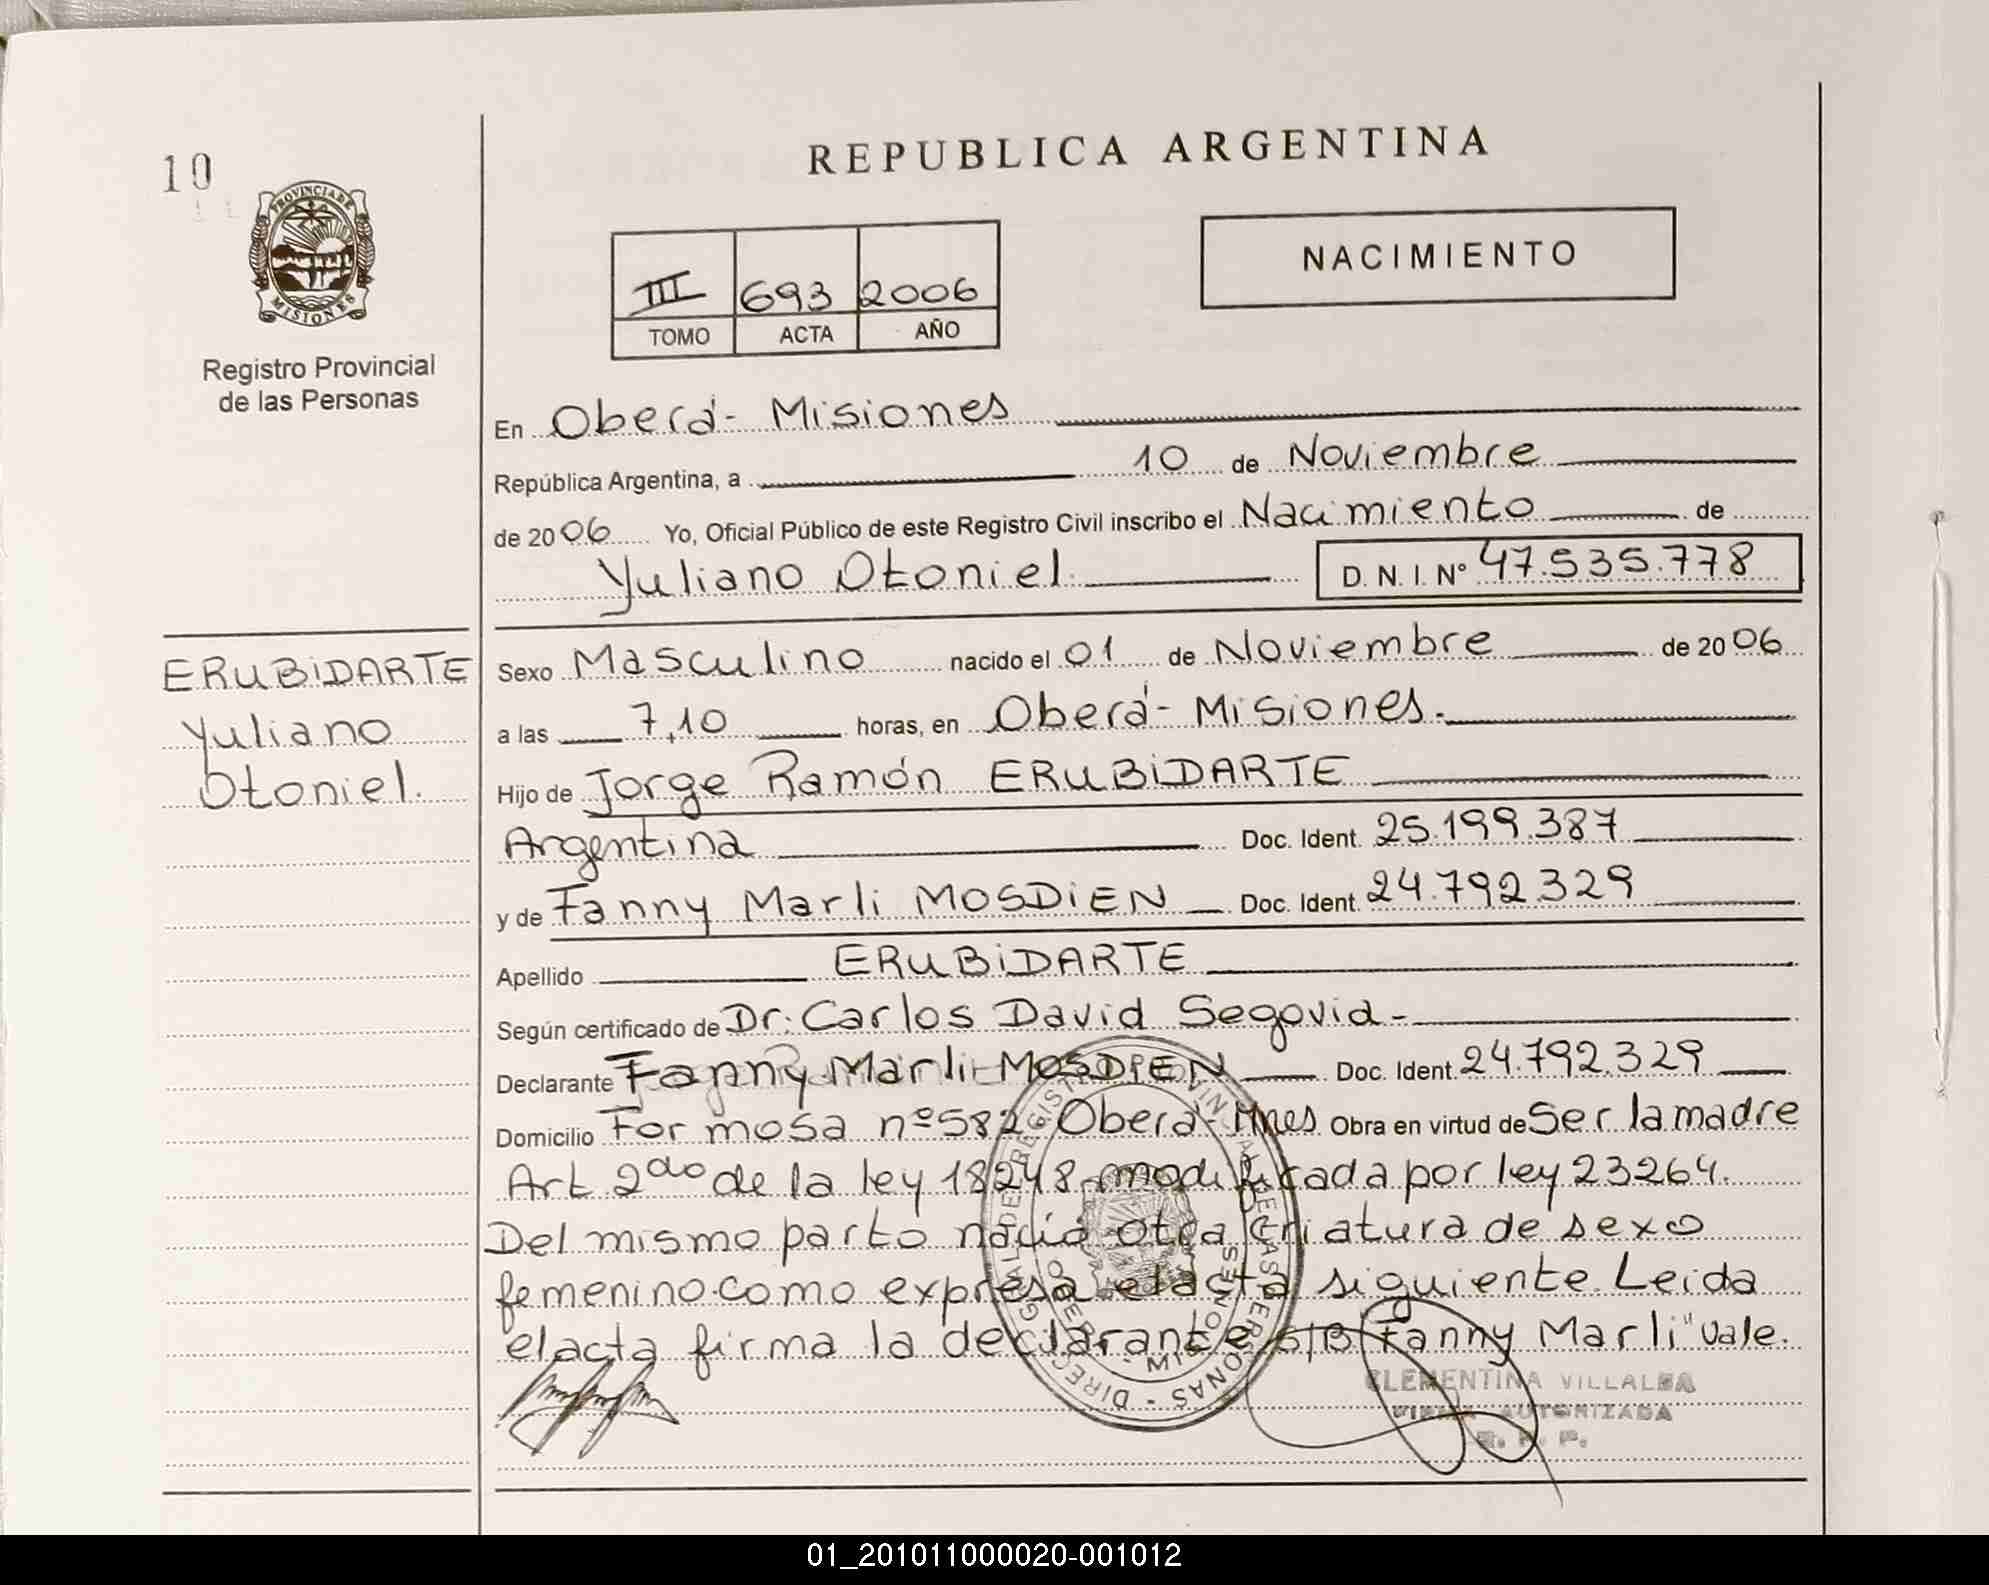 10
PROVINCIA DE
MISIONES
Registro Provincial
de las Personas
REPUBLICA ARGENTINA
III 693 2006
TOMO ACTA AÑO
NACIMIENTO
En Oberá - Misiones
República Argentina, a 10 de Noviembre
de 2006 Yo, Oficial Público de este Registro Civil inscribo el Nacimiento de
Yuliano Otoniel. D. N. I. Nº 47.535.778
ERUBIDARTE
Yuliano
Otoniel.
Sexo Masculino nacido el 01 de Noviembre de 2006
a las 7,10 horas, en Oberá - Misiones.
Hijo de Jorge Ramón ERUBIDARTE
Argentina Doc. Ident. 25.199.387
y de Fanny Marli MOSDIEN Doc. Ident. 24.792.329
Apellido ERUBIDARTE
Según certificado de Dr. Carlos David Segovia -
Declarante Fanny Marli MOSDIEN Doc. Ident. 24.792.329
Domicilio Formosa nº 582 - Oberá - Mnes Obra en virtud de Ser la madre
Art 2do de la ley 18248 modificada por ley 23264.
Del mismo parto nació otra criatura de sexo
femenino como expresa el acta siguiente. Leida
el acta firma la declarante S/B "Fanny Marli" Vale.
CLEMENTINA VILLALBA
FIRMA AUTORIZADA
R. P. P.
01_201011000020-001012